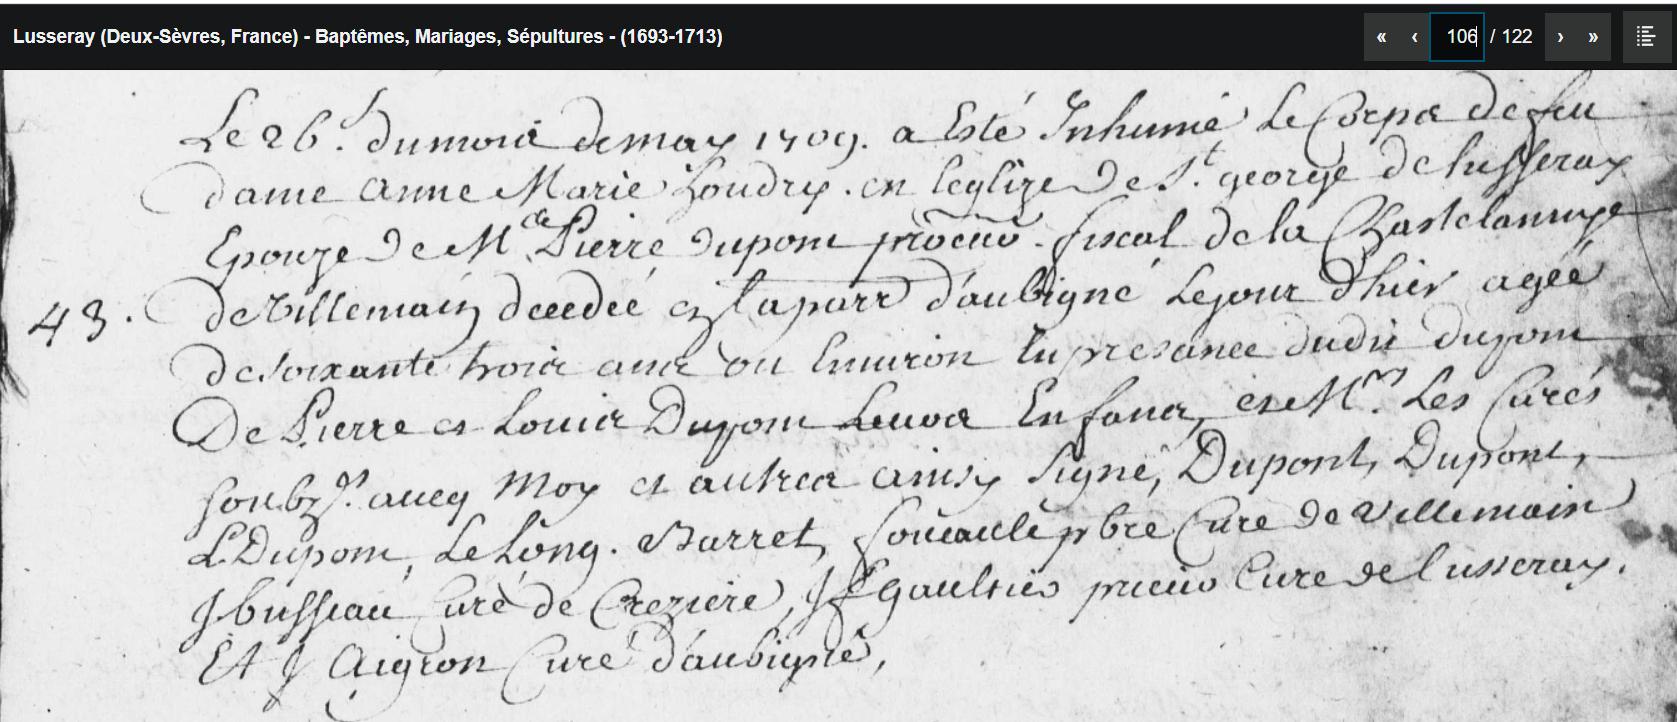 Lusseray (Deux-Sèvres, France) - Baptêmes, Mariages, Sépultures - (1693-1713)
« ‹ 106 / 122 › »
Le 26.e du mois de may 1709. a Esté Inhumé Le Corps de feu
dame anne Marie Loudry. en leglize de St. george de lusseray
Epouze de Me Pierre dupont procur. fiscal de la Chastelannye
43. de Villemain decedée en la parr d'aubigné Le jour d'hier agée
de soixante trois ans ou Environ En presance dudit dupont
De Pierre et Louis Dupont Enfans, et Mrs. Les Curés
soubz.s avecq Moy et autres ainsy signé, Dupont, Dupont,
L Dupont, Le Long. Barret, pbre Curé de Villemain
J busseau Curé de Creziere, J F Gaultier prieur Curé de lusseray.
Et J Aigron Curé d'aubigné,